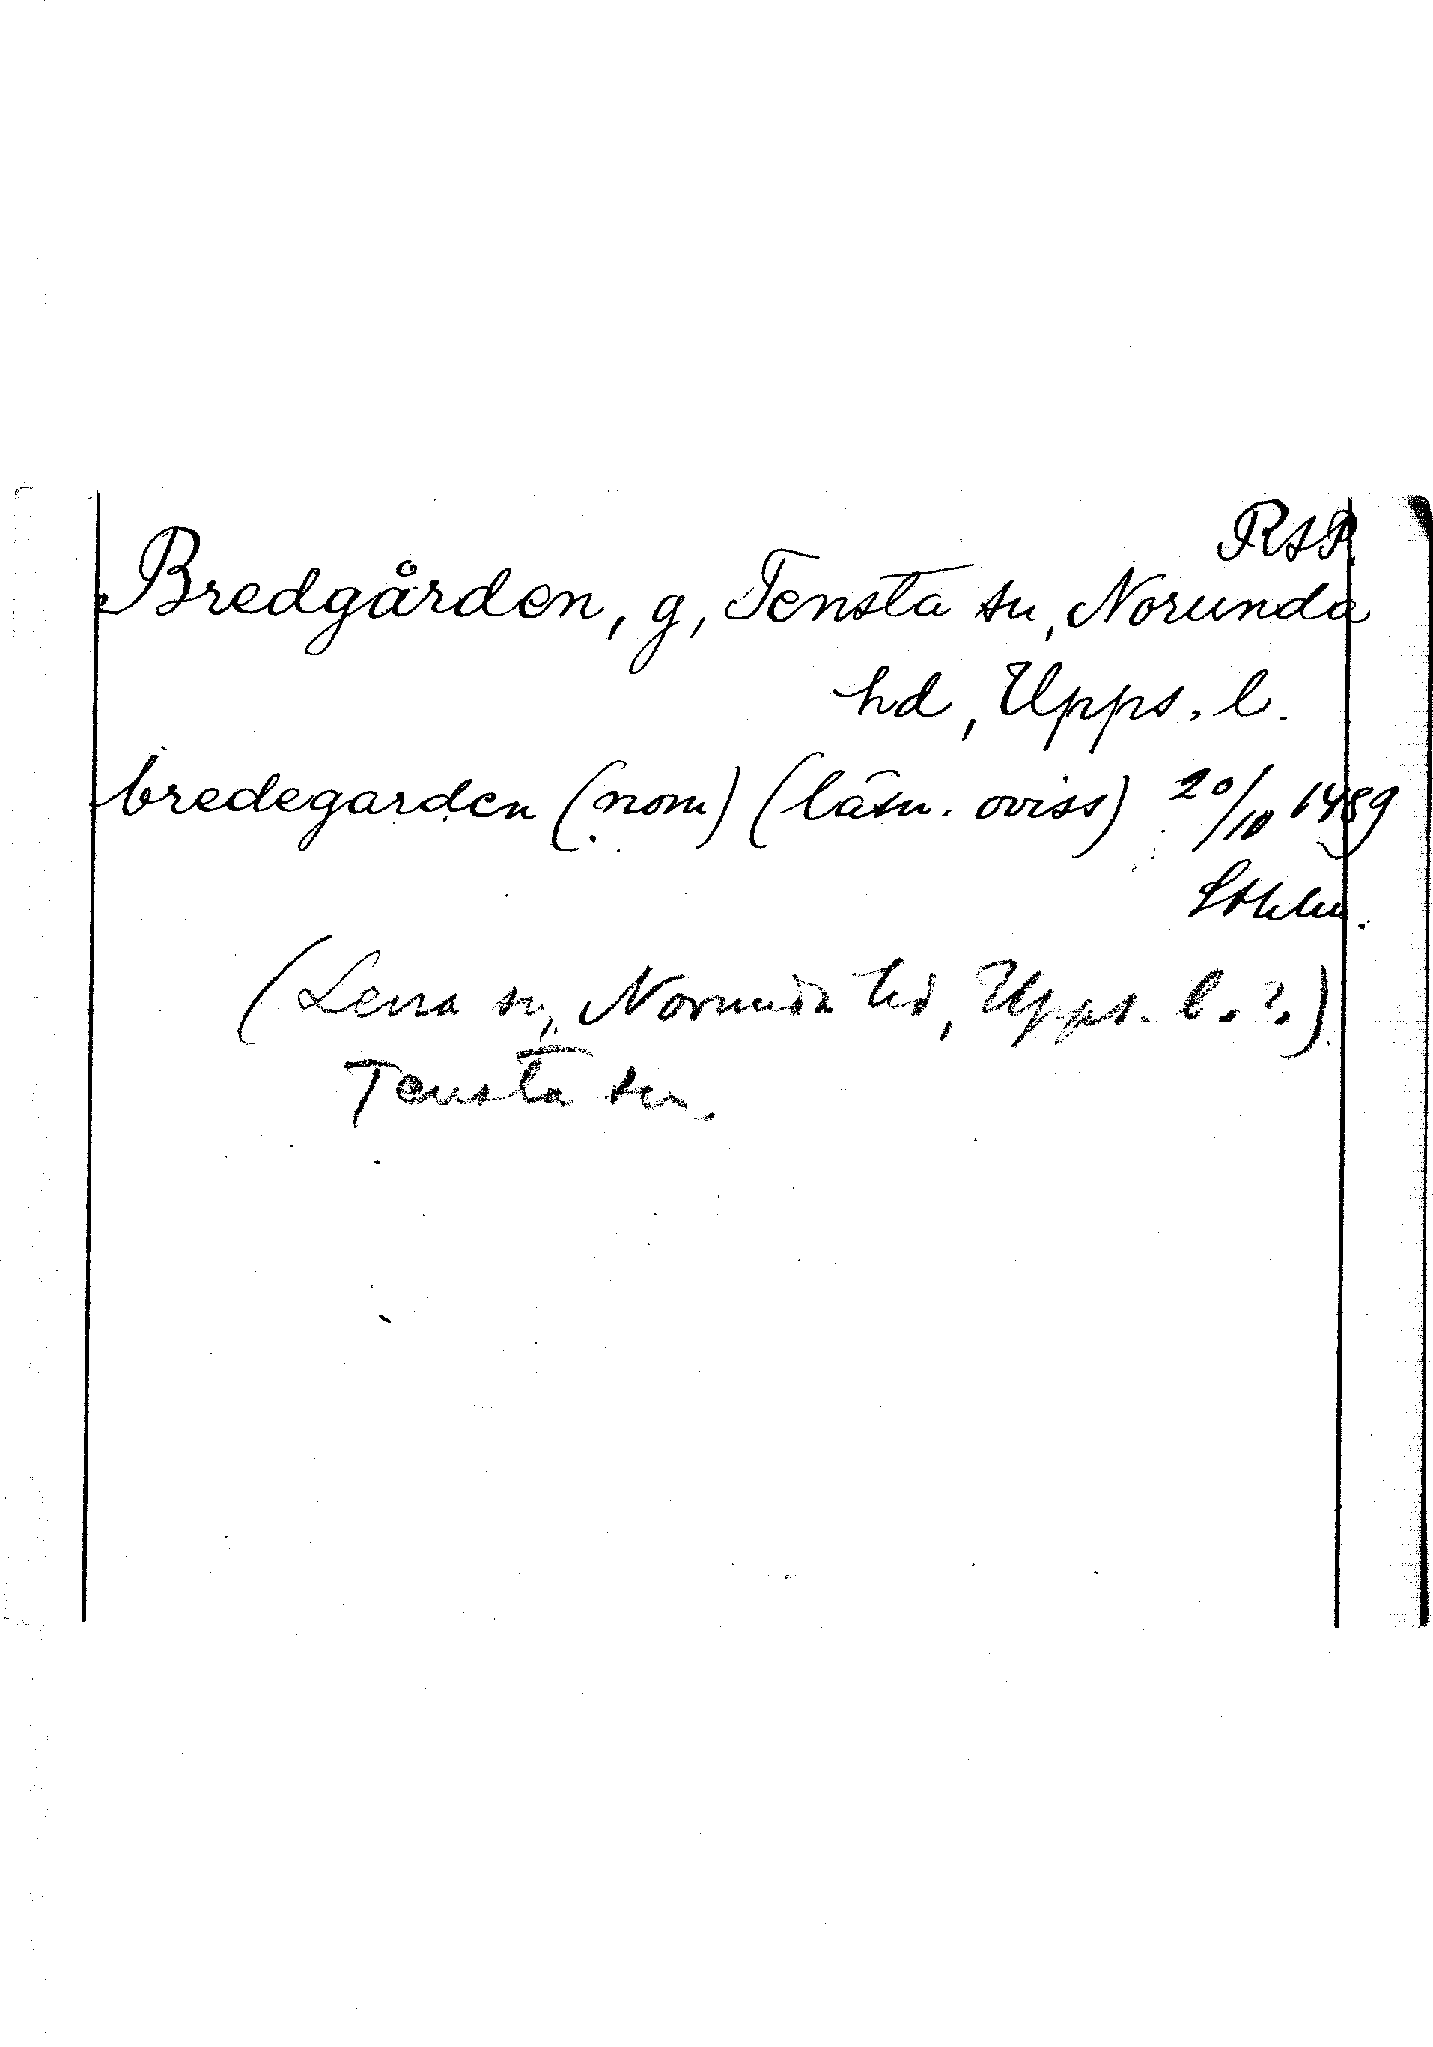 RAP
Bredgården, g, Tensta sn, Norunda
hd, Upps. l.
bredegarden (nom) (läsn. oviss) 20/10 1489
Sthlm.
(Lena sn, Norunda hd, Upps. l. ?)
Tensta sn.